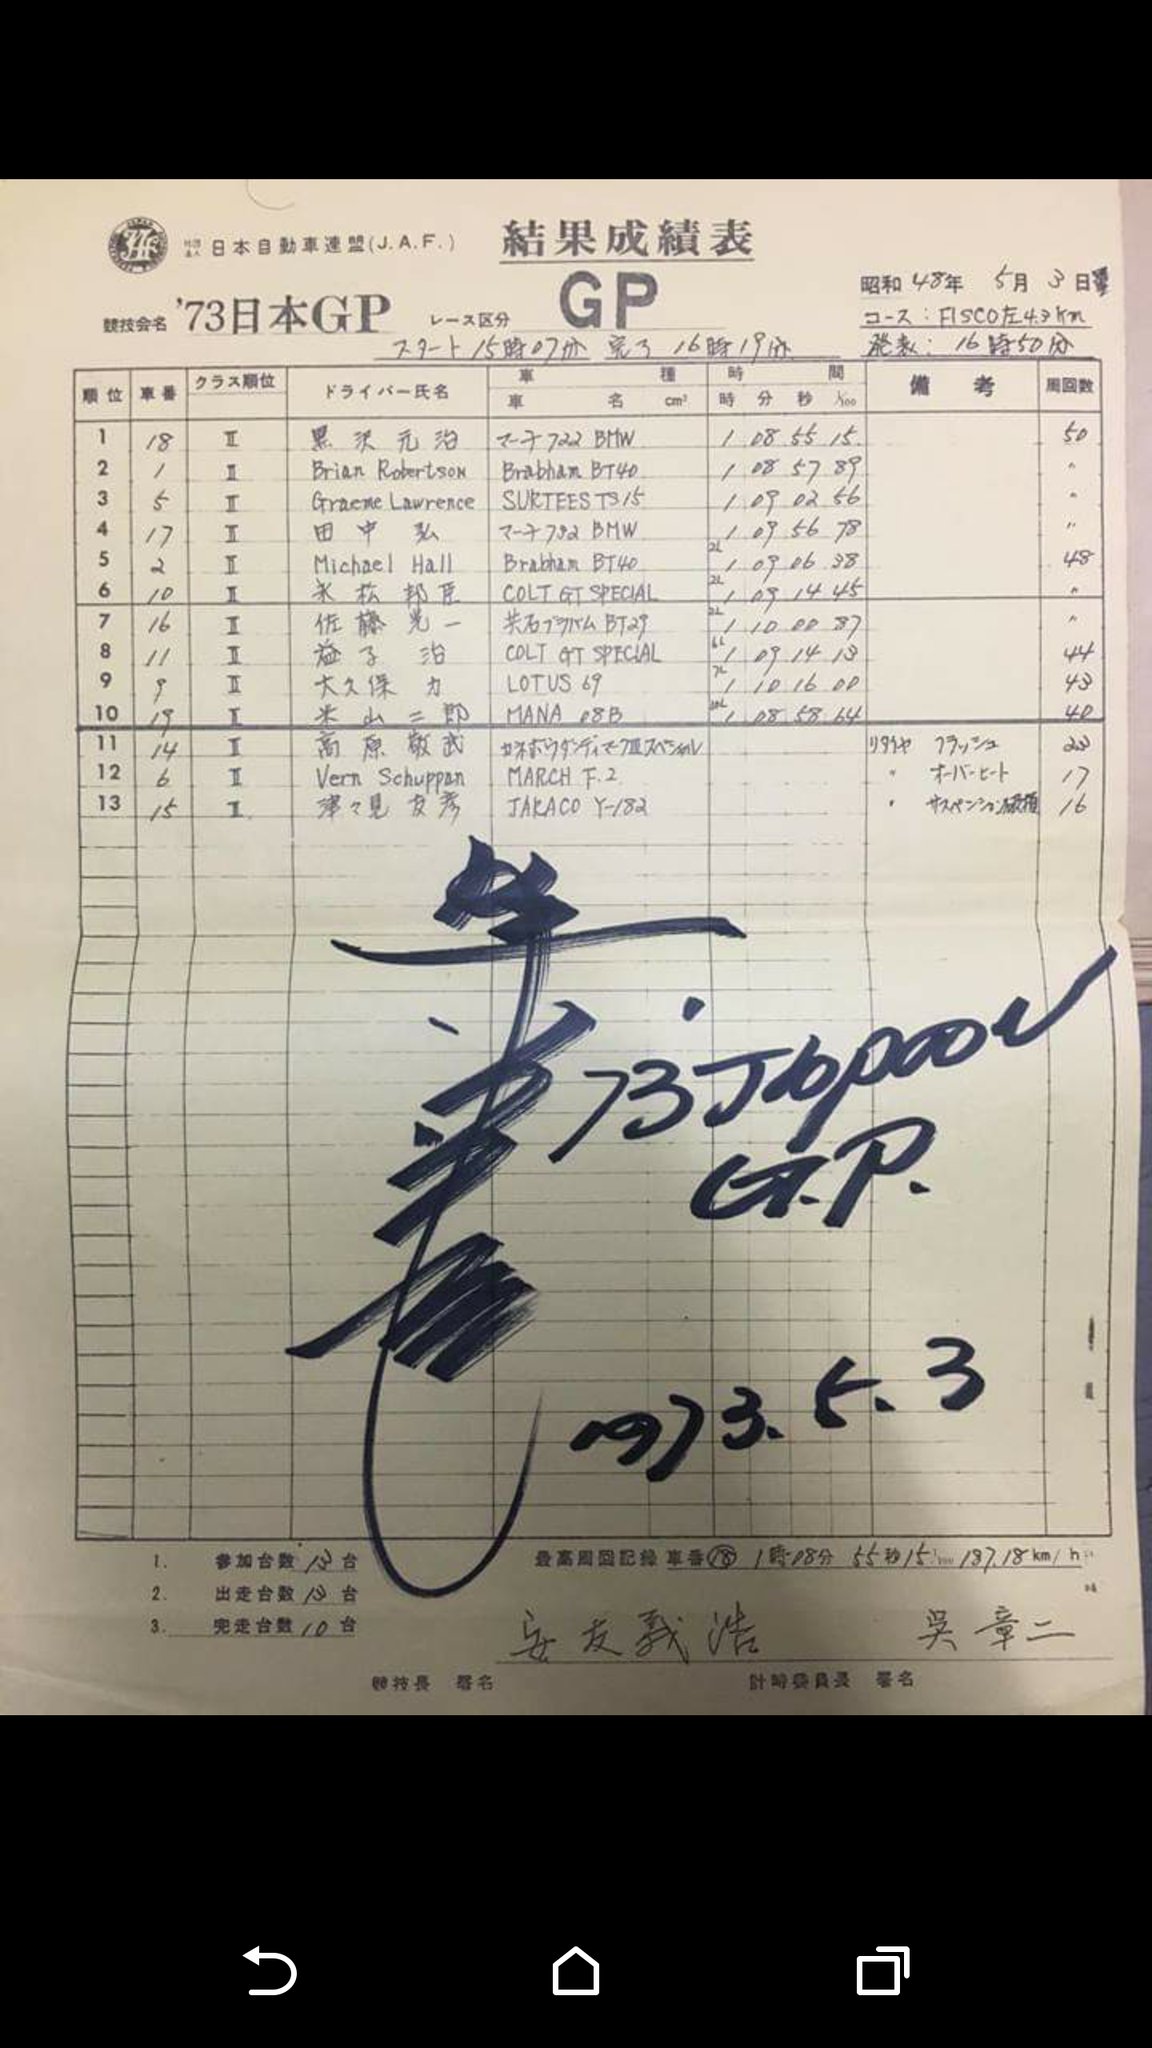 社団法人 日本自動車連盟(J.A.F.) 結果成績表
昭和 48年 5月 3日
競技会名 '73日本GP レース区分 GP
コース:FISCO左4.3km
スタート15時07分 完了 16時19分 発表:16時50分
順位 車番 クラス順位 ドライバー氏名 車種 車名 cm³ 時間 時 分 秒 1/100 備考 周回数
1 18 II 黒沢元治 マーチ722 BMW 1 08 55 15 50
2 1 II Brian Robertson Brabham BT40 1 08 57 89 〃
3 5 II Graeme Lawrence SURTEES TS15 1 09 02 56 〃
4 17 II 田中弘 マーチ732 BMW 1 09 56 78 〃
5 2 II Michael Hall Brabham BT40 2L 1 09 06 38 48
6 10 II 永松邦臣 COLT GT SPECIAL 2L 1 09 14 45 〃
7 16 II 佐藤光一 共石ブラバム BT29 2L 1 10 00 87 〃
8 11 II 益子治 COLT GT SPECIAL 6L 1 09 14 13 44
9 9 II 大久保力 LOTUS 69 7L 1 10 16 00 43
10 19 II 米山二郎 MANA 08B 10L 1 08 58 64 40
11 14 II 高原敬武 カネボウダンディマークIIスペシャル リタイヤ クラッシュ 23
12 6 II Vern Schuppan MARCH F.2 〃 オーバーヒート 17
13 15 II 津々見友彦 JARACO Y-182 〃 サスペンション破損 16
'73 Japan
G.P.
1973.5.3
1. 参加台数 13台 最高周回記録 車番⑱ 1時08分 55秒15 1/100 187.18km/h
2. 出走台数 13台
3. 完走台数 10台
安友義浩 呉章二
競技長 署名 計時委員長 署名